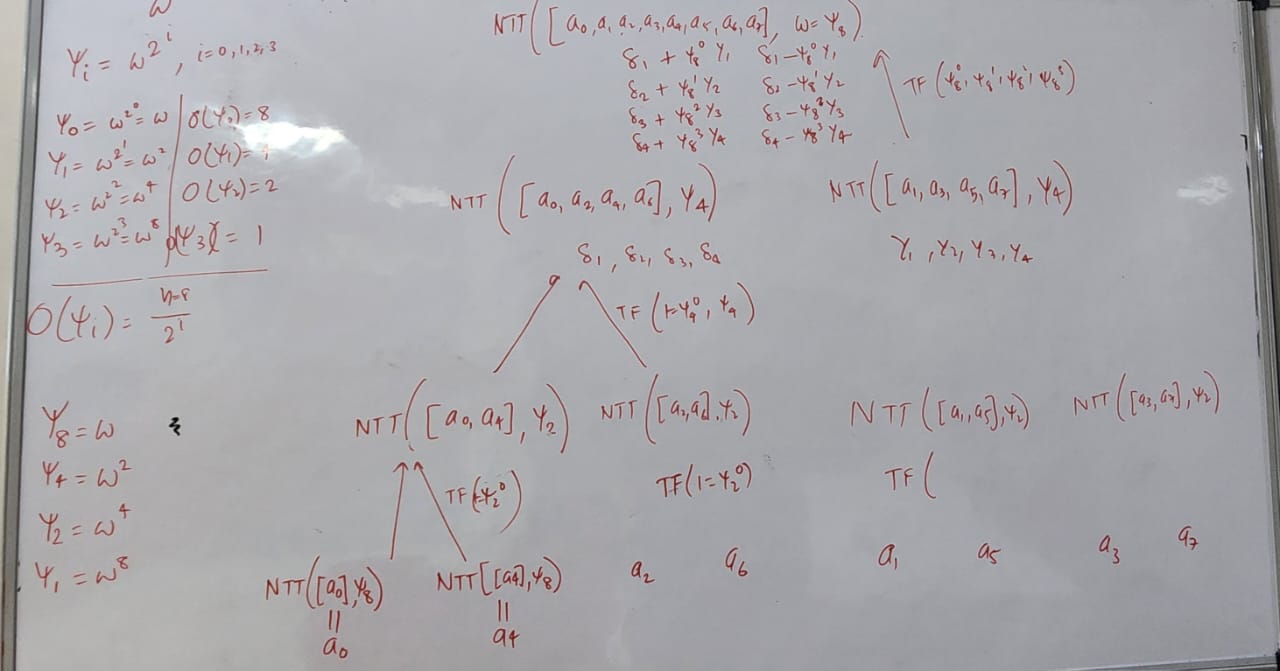 ω
ψi = ω^2^i , i=0,1,2,3
ψ0 = ω^2^0 = ω | O(ψ0)=8
ψ1 = ω^2^1 = ω^2 | O(ψ1)=
ψ2 = ω^2^2 = ω^4 | O(ψ2)=2
ψ3 = ω^2^3 = ω^8 | O(ψ3) = 1
O(ψi) = n=8 / 2^i
ψ8 = ω
ψ4 = ω^2
ψ2 = ω^4
ψ1 = ω^8
NTT([a0, a1, a2, a3, a4, a5, a6, a7], ω = ψ8)
δ1 + ψ8^0 γ1 δ1 - ψ8^0 γ1
δ2 + ψ8^1 γ2 δ2 - ψ8^1 γ2
δ3 + ψ8^2 γ3 δ3 - ψ8^2 γ3
δ4 + ψ8^3 γ4 δ4 - ψ8^3 γ4
TF(ψ8^0, ψ8^1, ψ8^2, ψ8^3)
NTT([a0, a2, a4, a6], ψ4) NTT([a1, a3, a5, a7], ψ4)
δ1, δ2, δ3, δ4 γ1, γ2, γ3, γ4
TF(1=ψ4^0, ψ4)
NTT([a0, a4], ψ2) NTT([a2, a6], ψ2) NTT([a1, a5], ψ2) NTT([a3, a7], ψ2)
TF(1=ψ2^0) TF(1=ψ2^0) TF(
NTT([a0], ψ8) NTT[[a4], ψ8) a2 a6 a1 a5 a3 a7
|| ||
a0 a4